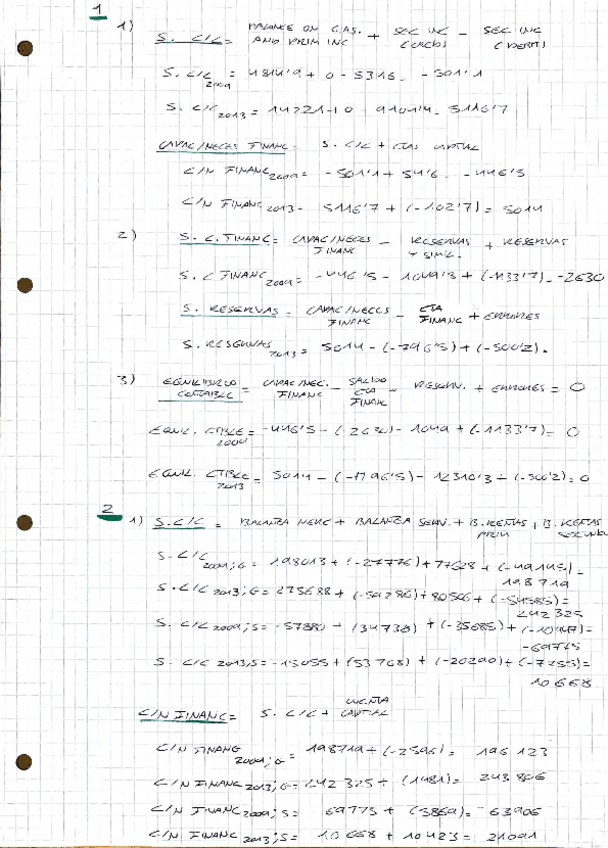 1
1) S. C/C = BALANCE ON G.AS. AND PRIM INC + SEC INC (CREDIT) - SEC INC (DEBIT)
S. C/C 2009 = 4814'9 + 0 - 5316 = -501'1
S. C/C 2013 = 14221 + 0 - 9104'4 = 5116'7
CAPAC/NECES FINANC = S. C/C + CTAS CAPITAL
C/N FINANC 2009 = -501'1 + 54'6 = -446'5
C/N FINANC 2013 = 5116'7 + (-102'7) = 5014
2) S. C. FINANC = CAPAC/NECES FINANC - RESERVAS + SIMIL. + RESERVAS
S. C FINANC 2009 = -446'5 - 1049'8 + (-1133'7) = -2630
S. RESERVAS = CAPAC/NECES FINANC - CTA FINANC + ERRORES
S. RESERVAS 2013 = 5014 - (-7965) + (-500'2) =
3) EQUILIBRIO CONTABLE = CAPAC/NEC. FINANC - SALDO CTA FINANC - RESERV. + ERRORES = 0
EQUIL. CTBLE 2009 = -446'5 - (-2630) - 1049 + (-1133'7) = 0
EQUIL. CTBLE 2013 = 5014 - (-7796'5) - 12310'3 + (-500'2) = 0
2
1) S. C/C = BALANZA MERC + BALANZA SERV. + B. RENTAS PRIM + B. RENTAS SECUND
S. C/C 2009; G = 198013 + (-27776) + 77628 + (-49145) = 198719
S. C/C 2013; G = 275688 + (-59286) + 80506 + (-54585) = 242325
S. C/C 2009; S = -57880 + (34738) + (-35685) + (-10947) = -69775
S. C/C 2013; S = -15055 + (53768) + (-20290) + (-7255) = 10668
C/N FINANC = S. C/C + CUENTA CAPITAL
C/N FINANC 2009; G = 198719 + (-2596) = 196123
C/N FINANC 2013; G = 242325 + (1481) = 243806
C/N FINANC 2009; S = 69775 + (5869) = -63906
C/N FINANC 2013; S = 10668 + 10423 = 21091